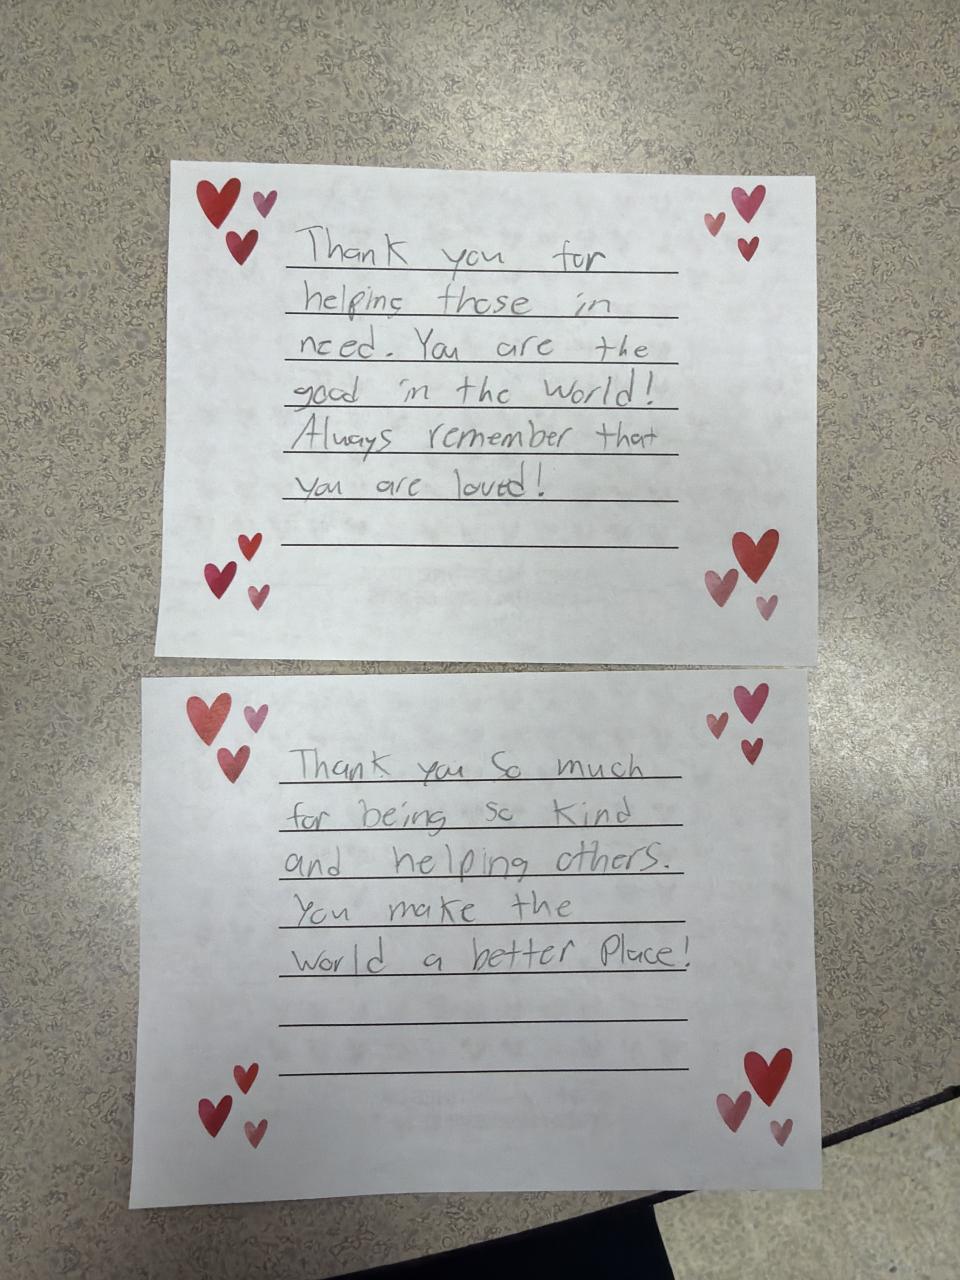 Thank you for
helping those in
need. You are the
good in the world!
Always remember that
you are loved!
Thank you so much
for being so kind
and helping others.
You make the
world a better Place!